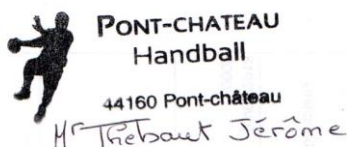 PONT-CHATEAU
Handball
44160 Pont-château
Mr Thébaut Jérôme